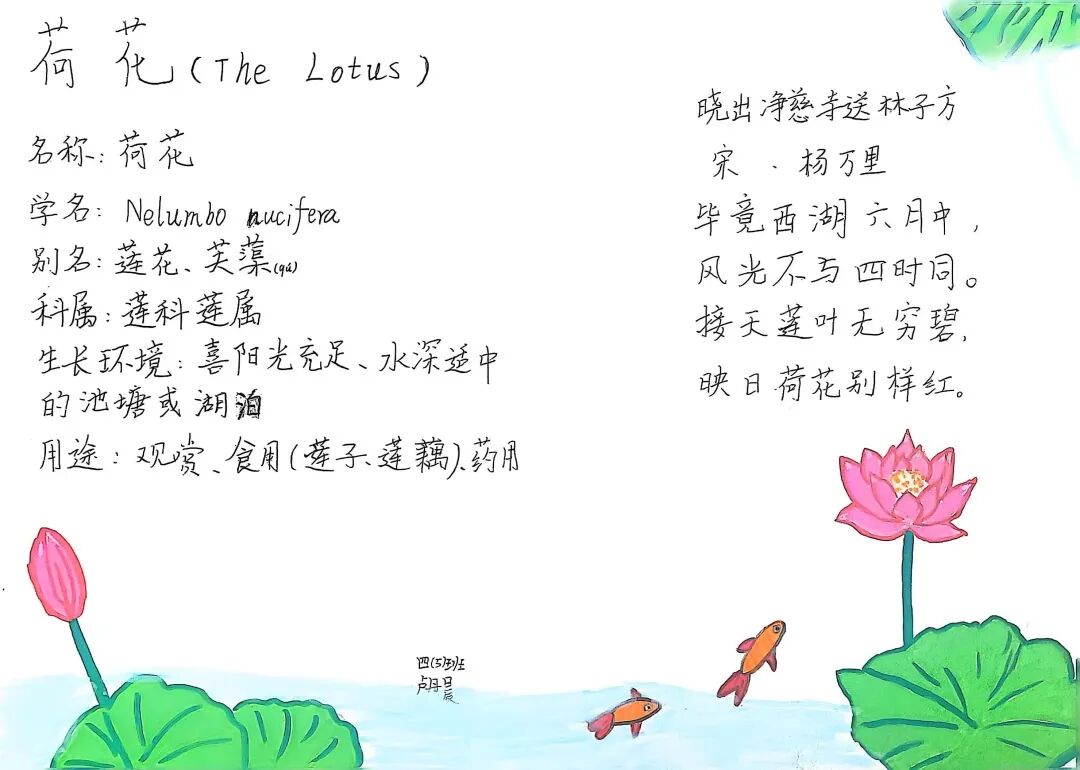 荷花(The Lotus)
名称:荷花
学名:Nelumbo nucifera
别名:莲花、芙蕖(qú)
科属:莲科莲属
生长环境:喜阳光充足、水深适中
的池塘或湖泊
用途:观赏、食用(莲子、莲藕)、药用
晓出净慈寺送林子方
宋·杨万里
毕竟西湖六月中,
风光不与四时同。
接天莲叶无穷碧,
映日荷花别样红。
四(5)班
卢丹晨